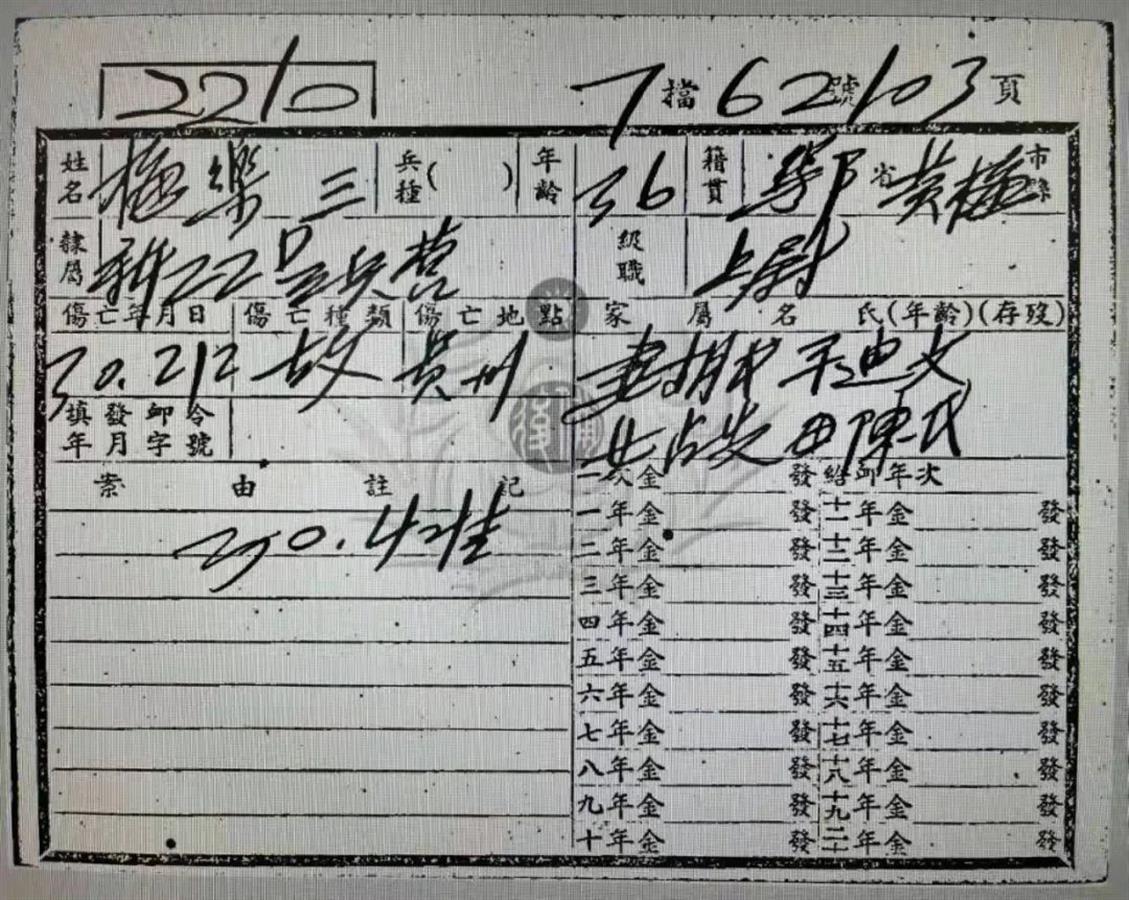 2210 7檔62號103頁
姓名 梅樂三 兵種( ) 年齡 36 籍貫 鄂省黃梅市縣
隸屬 新22D工兵营 級職 上尉
傷亡年月日 傷亡種類 傷亡地點 家屬名氏(年齡)(存歿)
30.212 故 貴州 妻胡氏 子迪文
填發卹令年月字號 父占先 母陳氏
一次金 發給卹年次
案由註記
一年金 發 十一年金 發
30.4准
二年金 發 十二年金 發
三年金 發 十三年金 發
四年金 發 十四年金 發
五年金 發 十五年金 發
六年金 發 十六年金 發
七年金 發 十七年金 發
八年金 發 十八年金 發
九年金 發 十九年金 發
十年金 發 二十年金 發